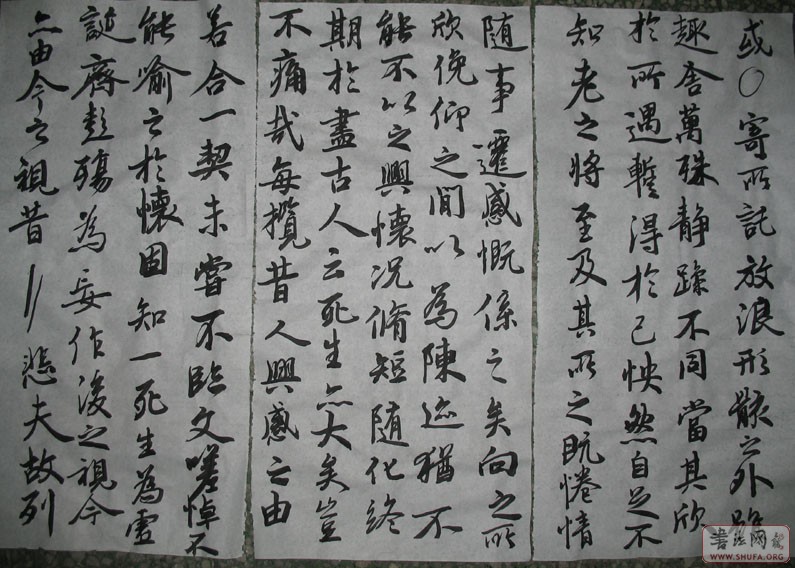 或〇寄所託放浪形骸之外雖
趣舍萬殊静躁不同當其欣
於所遇暫得於己怏然自足不
知老之將至及其所之既惓情
随事遷感慨係之矣向之所
欣俛仰之間以為陳迹猶不
能不以之興懷况脩短随化終
期於盡古人云死生亦大矣豈
不痛哉每攬昔人興感之由
若合一契未嘗不臨文嗟悼不
能喻之於懷固知一死生為虚
誕齊彭殤為妄作後之視今
亦由今之視昔〢悲夫故列
書法网
WWW.SHUFA.ORG